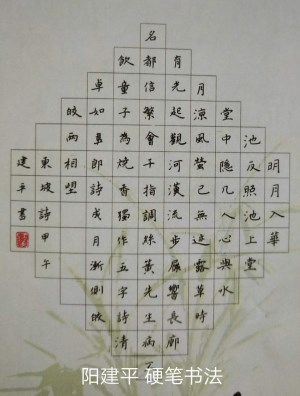 明月入華
池反照池上堂
堂中隱几人心與水
月涼風螢已無迹露草時
有光起觀河漢流步屧響長廊
名都信繁會千指調絲簧先生病不
飲童子為燒香獨作五字詩清
卓如韋郎詩成月漸側皎
皎兩相望
東坡詩甲午
建平書
阳建平 硬笔书法